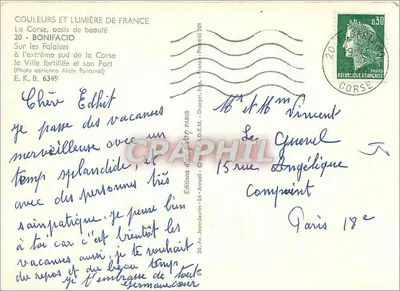 COULEURS ET LUMIÈRE DE FRANCE
La Corse, oasis de beauté
20 - BONIFACIO
Sur les Falaises
à l'extrême sud de la Corse
la Ville fortifiée et son Port
(Photo aérienne Alain Perceval)
E. K. B. 6349
Chère Edhit
je passe des vacances
merveilleuse avec un
temps splandide, et
avec des personnes très
sainpatrique. je pense bien
à toi car c'est bientôt les
vacances aussi, je te souhait
du repos et du beau temps
je t'embrasse de tout
Mr et Mme Vincent
Le
15 rue Angélique
Compoint
Paris 18e
0,30
RÉPUBLIQUE FRANÇAISE
CORSE
CPAPHIL